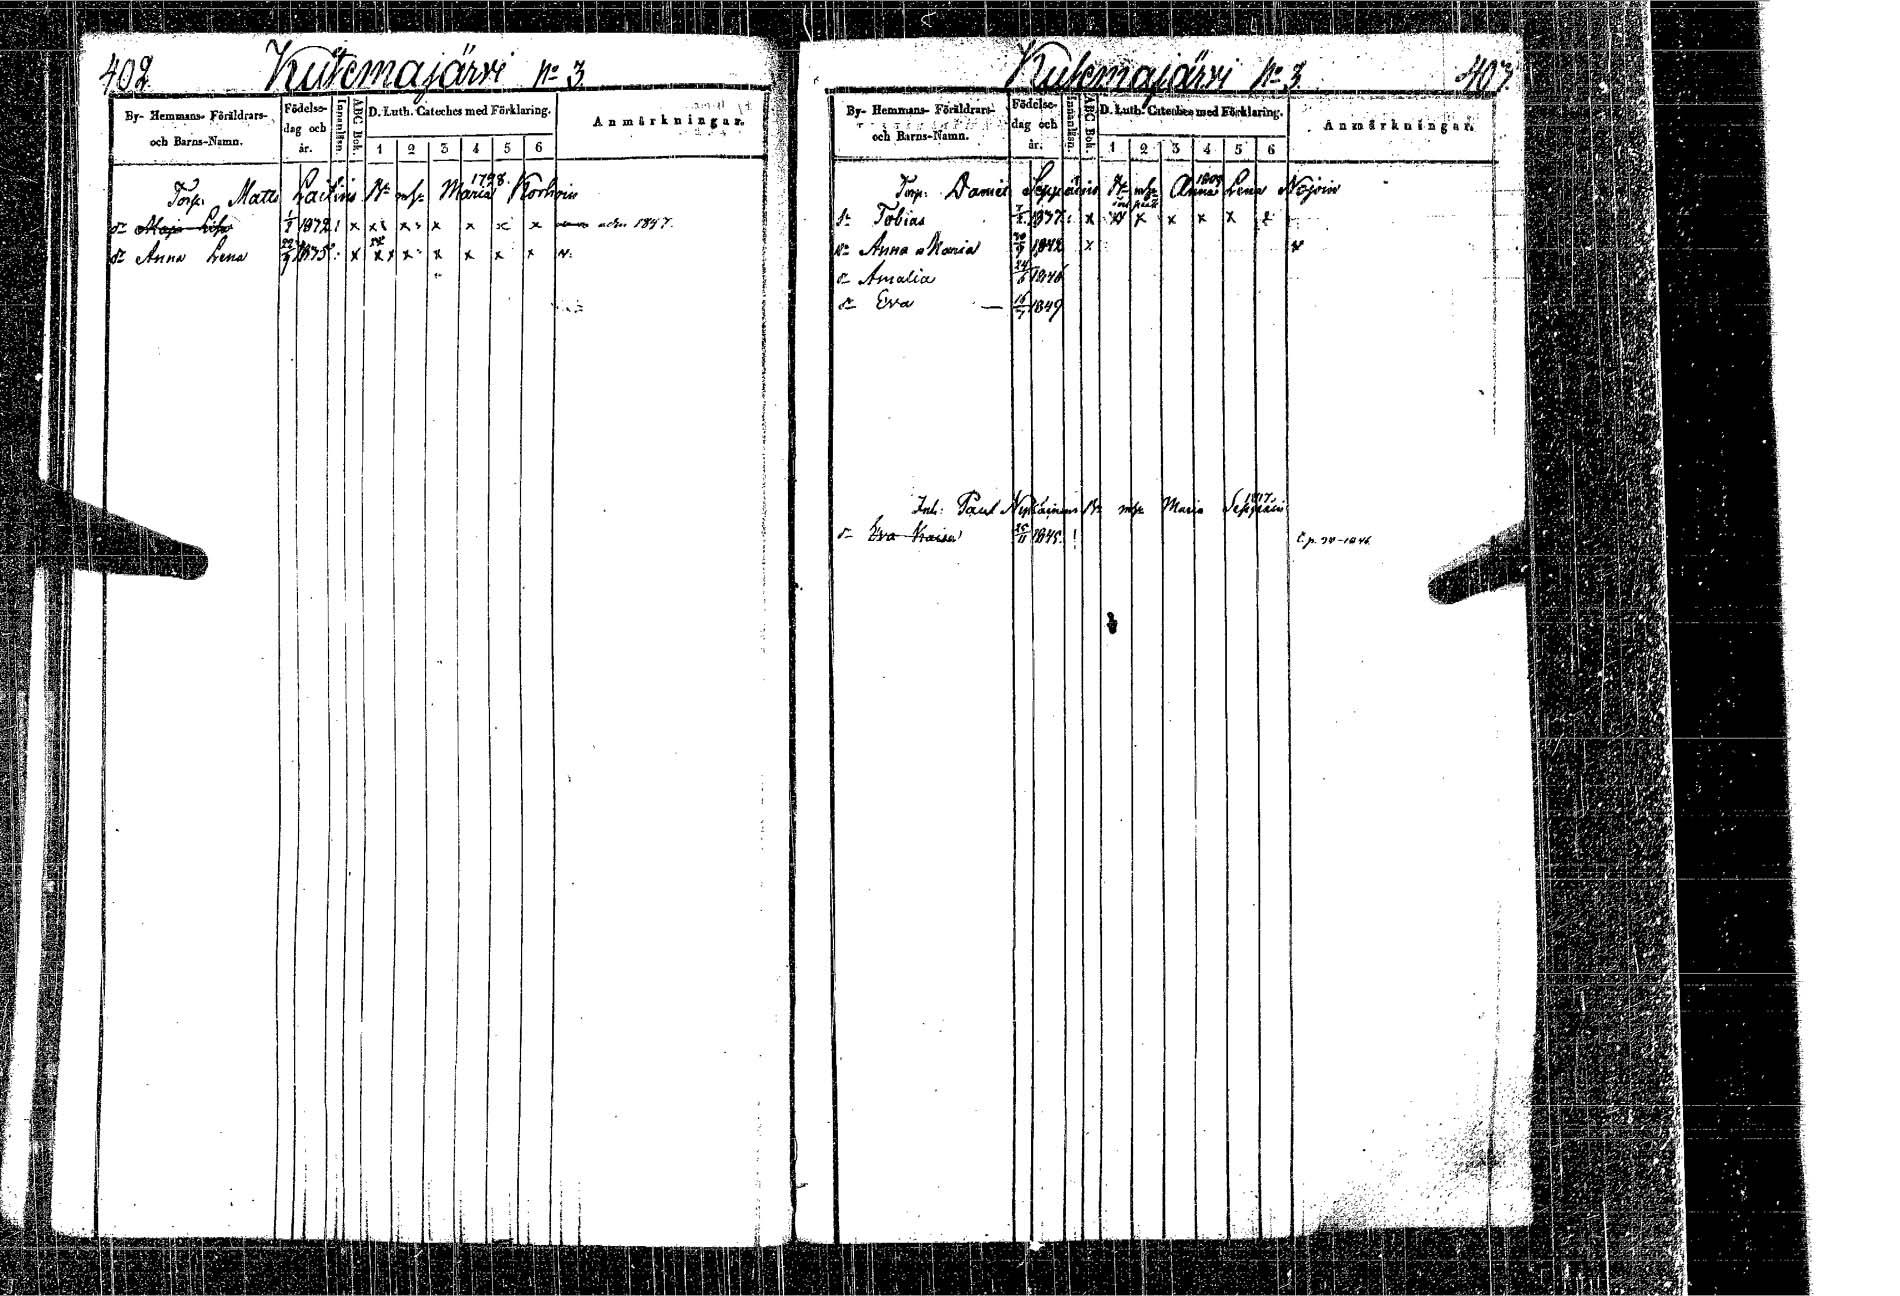 402 Kutemajärvi No 3
By- Hemmans- Föräldrars- och Barns-Namn.
Födelse-dag och år.
Innanläsn.
ABC Bok.
D. Luth. Cateches med Förklaring.
1 2 3 4 5 6
Anmärkningar.
1798
Torp. Matts Laitins Br m. h. Maria Korhoin
dr Maja Lisa 1/2 1832 x x x x x x x 1847.
dr Anna Lena 22/9 1835 x x x x x x x
Kutemajärvi No 3 403.
By- Hemmans- Föräldrars- och Barns-Namn.
Födelse-dag och år.
Innanläsn.
ABC Bok.
D. Luth. Cateches med Förklaring.
1 2 3 4 5 6
Anmärkningar.
Torp. Daniel Seppäins Br m. h. Anna Lena Nojoin
Sr Tobias 1837 x x x x x x
dr Anna Maria 30/9 1842 x
dr Amalia 24/6 1846
dr Eva — 16/7 1849
1817.
Inh: Paul Br m. h. Maria Seppäin
dr Eva Kaisa 25/11 1845